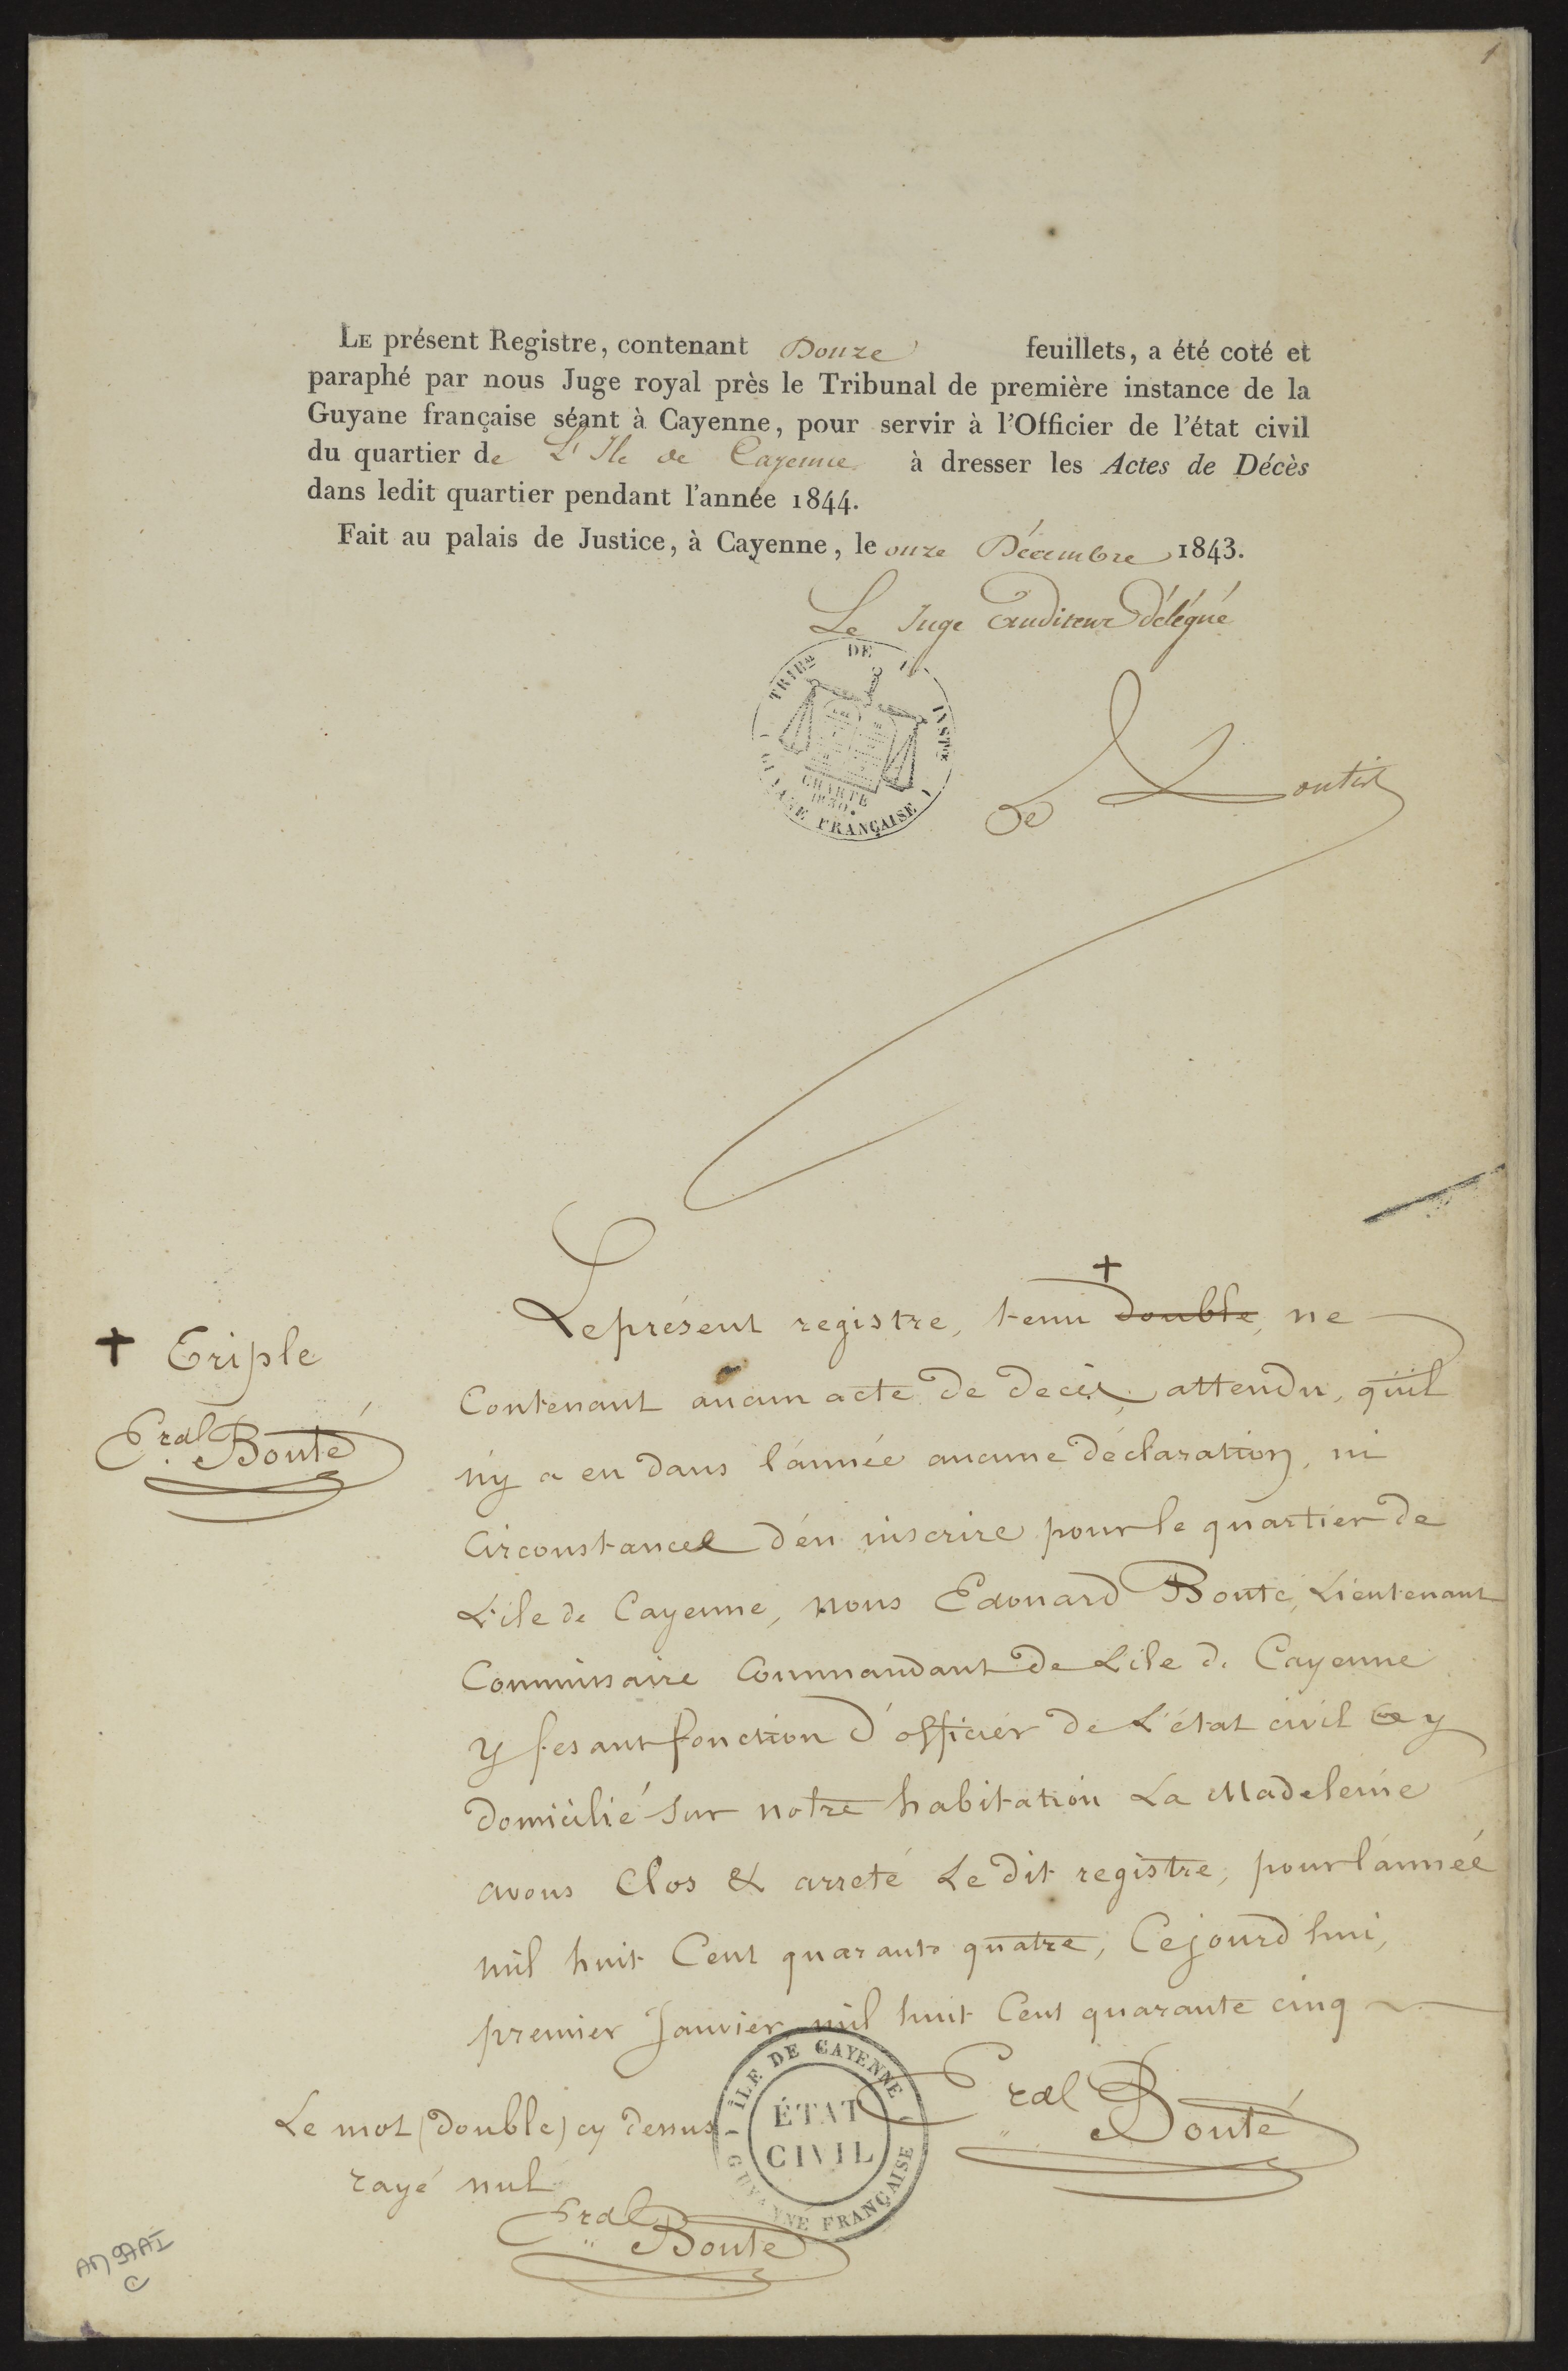 1
LE présent Registre, contenant Douze feuillets, a été coté et
paraphé par nous Juge royal près le Tribunal de première instance de la
Guyane française séant à Cayenne, pour servir à l'Officier de l'état civil
du quartier de L'Ile de Cayenne à dresser les Actes de Décès
dans ledit quartier pendant l'année 1844.
Fait au palais de Justice, à Cayenne, le onze Décembre 1843.
Le Juge Auditeur Délégué
TRIBAL DE 1re INSTce
CHARTE
1830.
GUYANE FRANÇAISE
De
+
Le présent registre, tenu double, ne
+ Triple
Erdl Bouté
Contenant aucun acte de decès, attendu, qu'il
n'y a eu dans l'année aucune déclaration, ni
circonstances d'en inscrire pour le quartier de
L'ile de Cayenne, nous Edouard Bouté, Lieutenant
Commissaire Commandant de L'ile de Cayenne
y fesant fonction d'officier de L'état civil & y
domicilié sur notre habitation La Madeleine
avons Clos & arreté Le dit registre, pour l'année
mil huit Cent quarante quatre, Cejourd'hui,
premier Janvier mil huit Cent quarante cinq
ÎLE DE CAYENNE
ÉTAT
CIVIL
GUYANNE FRANÇAISE
Erdl Bouté
Le mot (double) cy dessus
rayé nul
Erdl Bouté